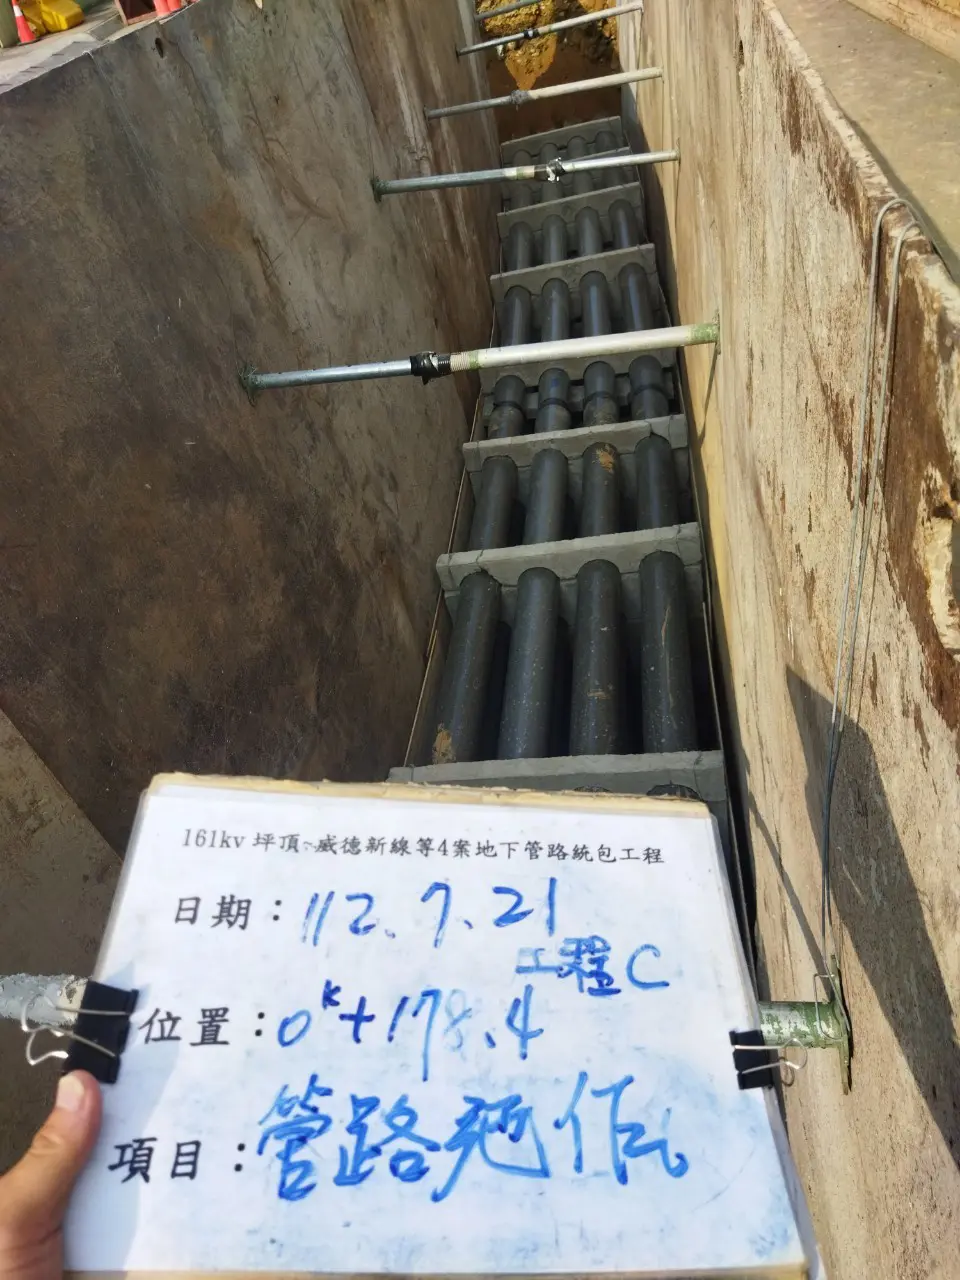 161kv 坪頂~威德新線等4案地下管路統包工程
日期：112.7.21
工程C
位置：0K+178.4
項目：管路施作